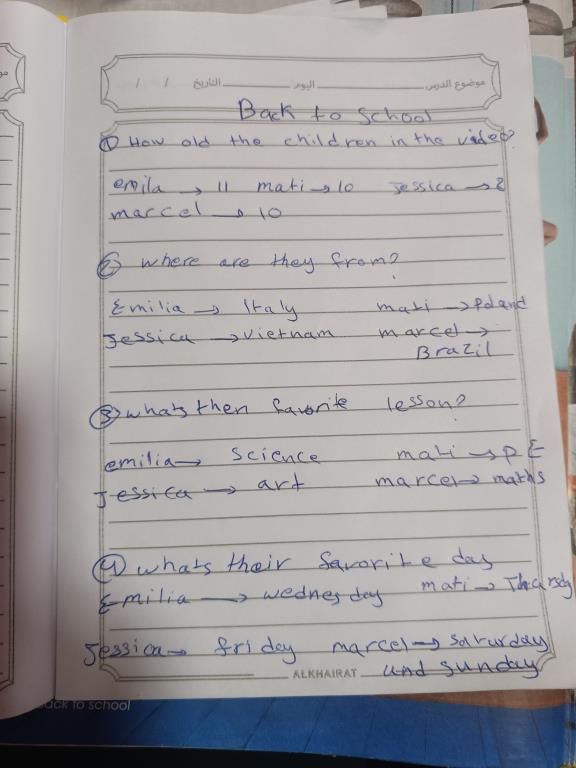 موضوع الدرس اليوم التاريخ / /
Back to School
① How old the children in the video?
emila → 11 mati → 10 Jessica → 8
marcel → 10
② where are they from?
Emilia → Italy mati → Poland
Jessica → vietnam marcel →
Brazil
③ whats then favorite lesson?
emilia → science mati → PE
Jessica → art marcel → maths
④ whats their favorite day
Emilia → wednesday mati → Thursdy
Jessica → friday marcel → saturday
and sunday
ALKHAIRAT
back to school